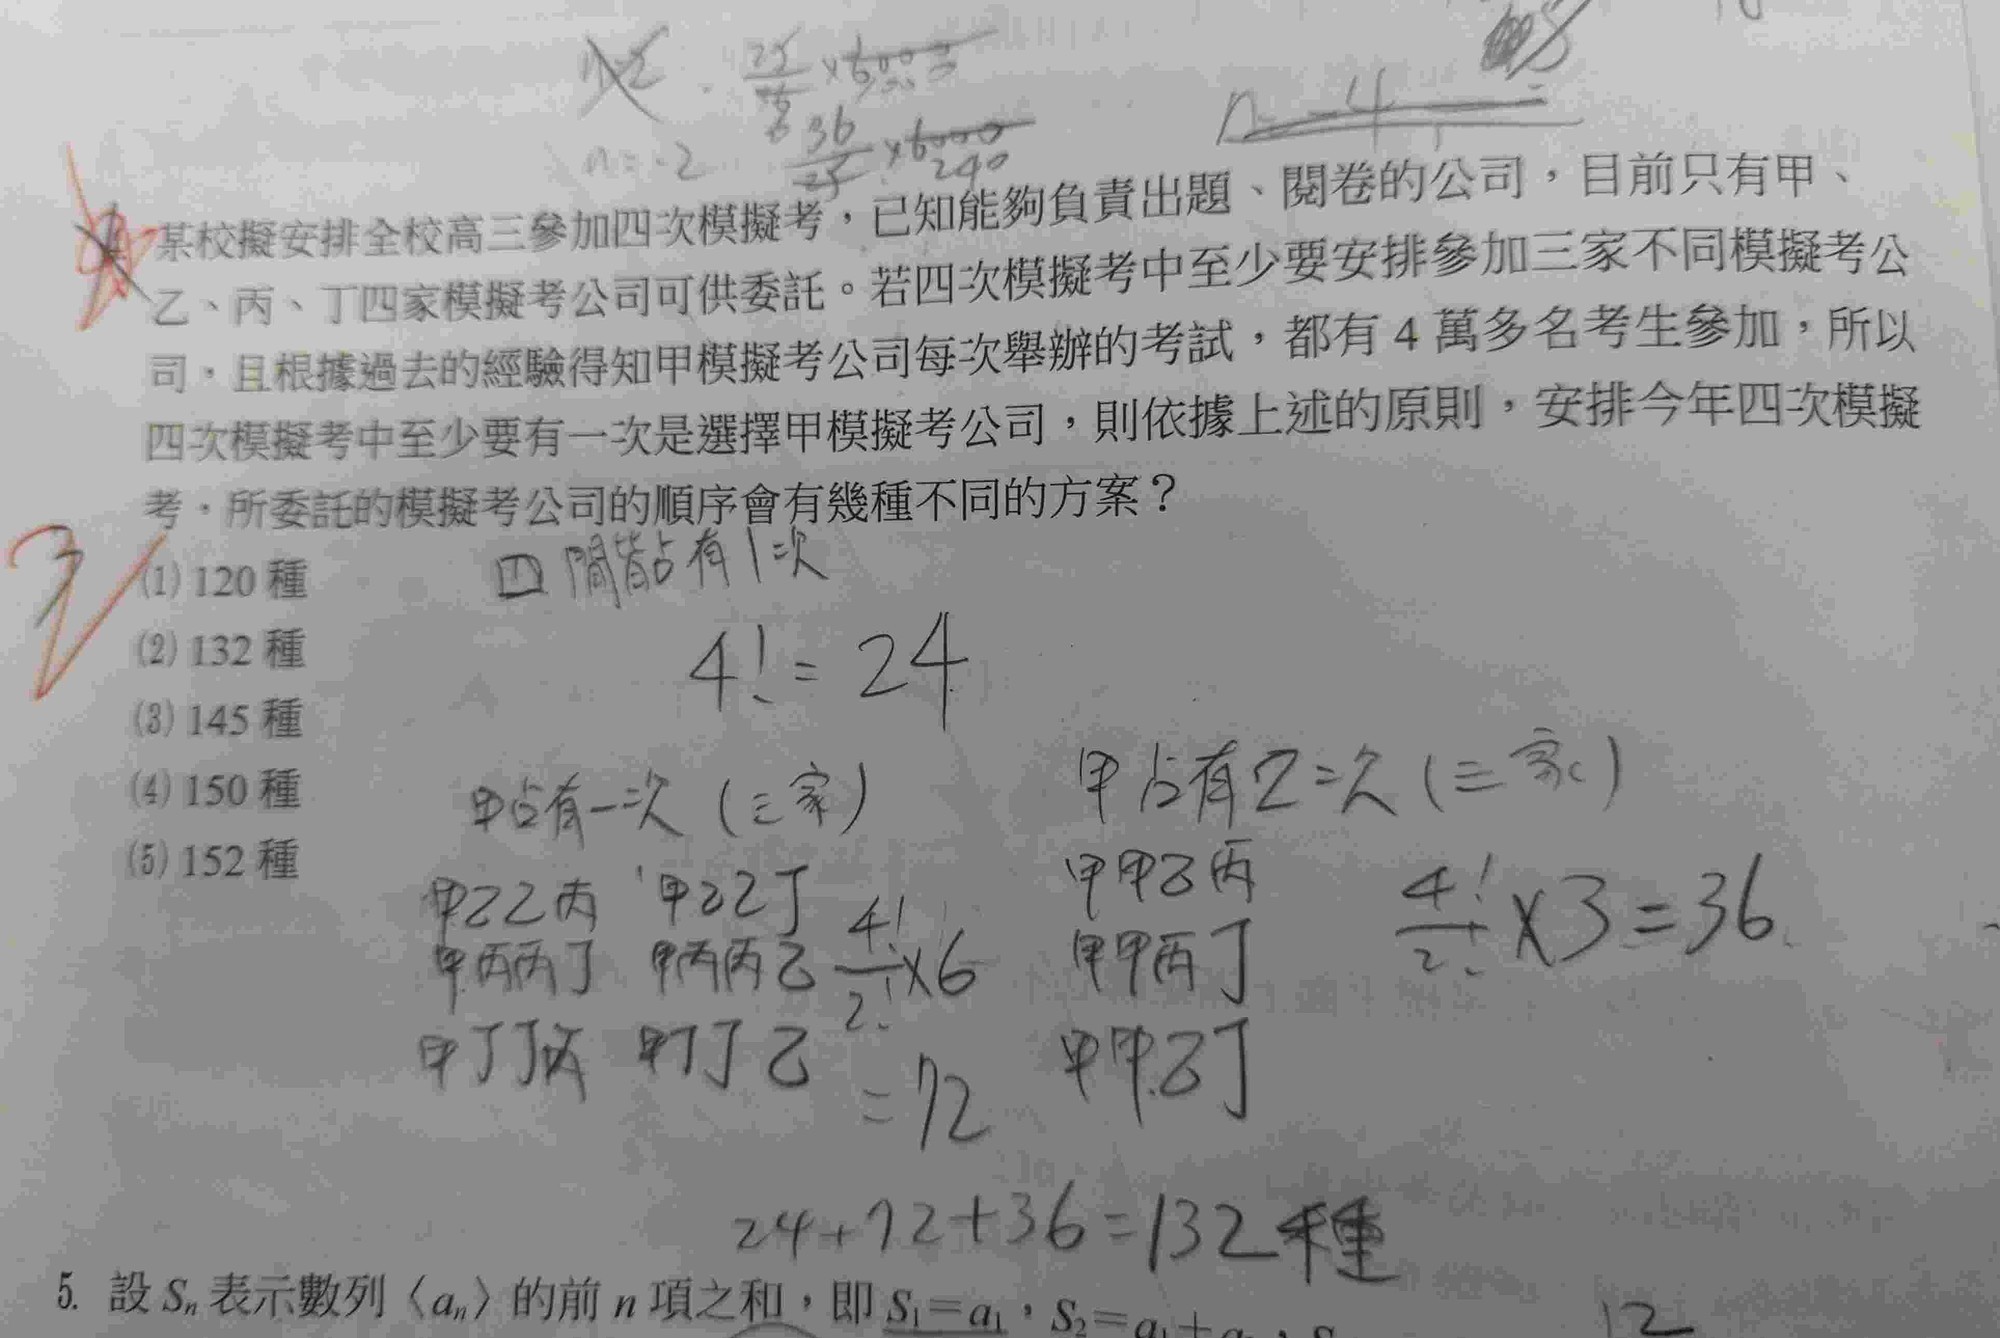 n=-2
25/6 × 6000
n=-2
36/25 × 6000
240
n=-4
某校擬安排全校高三參加四次模擬考，已知能夠負責出題、閱卷的公司，目前只有甲、
乙、丙、丁四家模擬考公司可供委託。若四次模擬考中至少要安排參加三家不同模擬考公
司，且根據過去的經驗得知甲模擬考公司每次舉辦的考試，都有 4 萬多名考生參加，所以
四次模擬考中至少要有一次是選擇甲模擬考公司，則依據上述的原則，安排今年四次模擬
考，所委託的模擬考公司的順序會有幾種不同的方案？
(1) 120 種
(2) 132 種
(3) 145 種
(4) 150 種
(5) 152 種
2
四間皆占有1次
4! = 24
甲占有一次（三家）
甲乙乙丙 甲乙乙丁
甲丙丙丁 甲丙丙乙
甲丁丁丙 甲丁丁乙
4!/2! × 6
= 72
甲占有2次（三家）
甲甲乙丙
甲甲丙丁
甲甲乙丁
4!/2! × 3 = 36
24+72+36=132種
5. 設 Sn 表示數列〈an〉的前 n 項之和，即 S1＝a1，S2＝a1＋
12